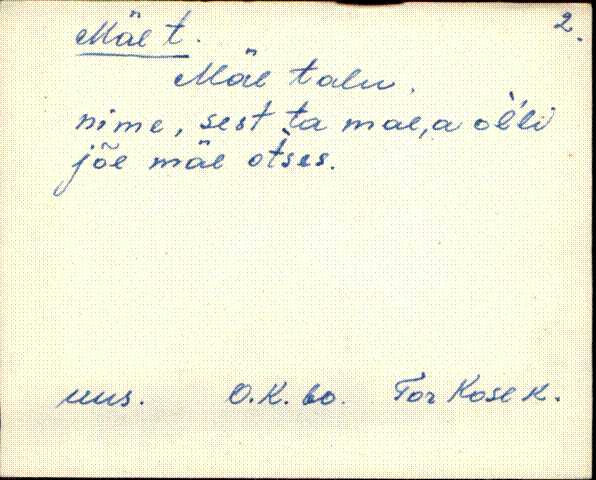 2.
Mäe t.
Mäe talu.
nime, sest ta mae,a òĺli
jõe mäe otses.
uus. O.K. 60. Tor Kose k.